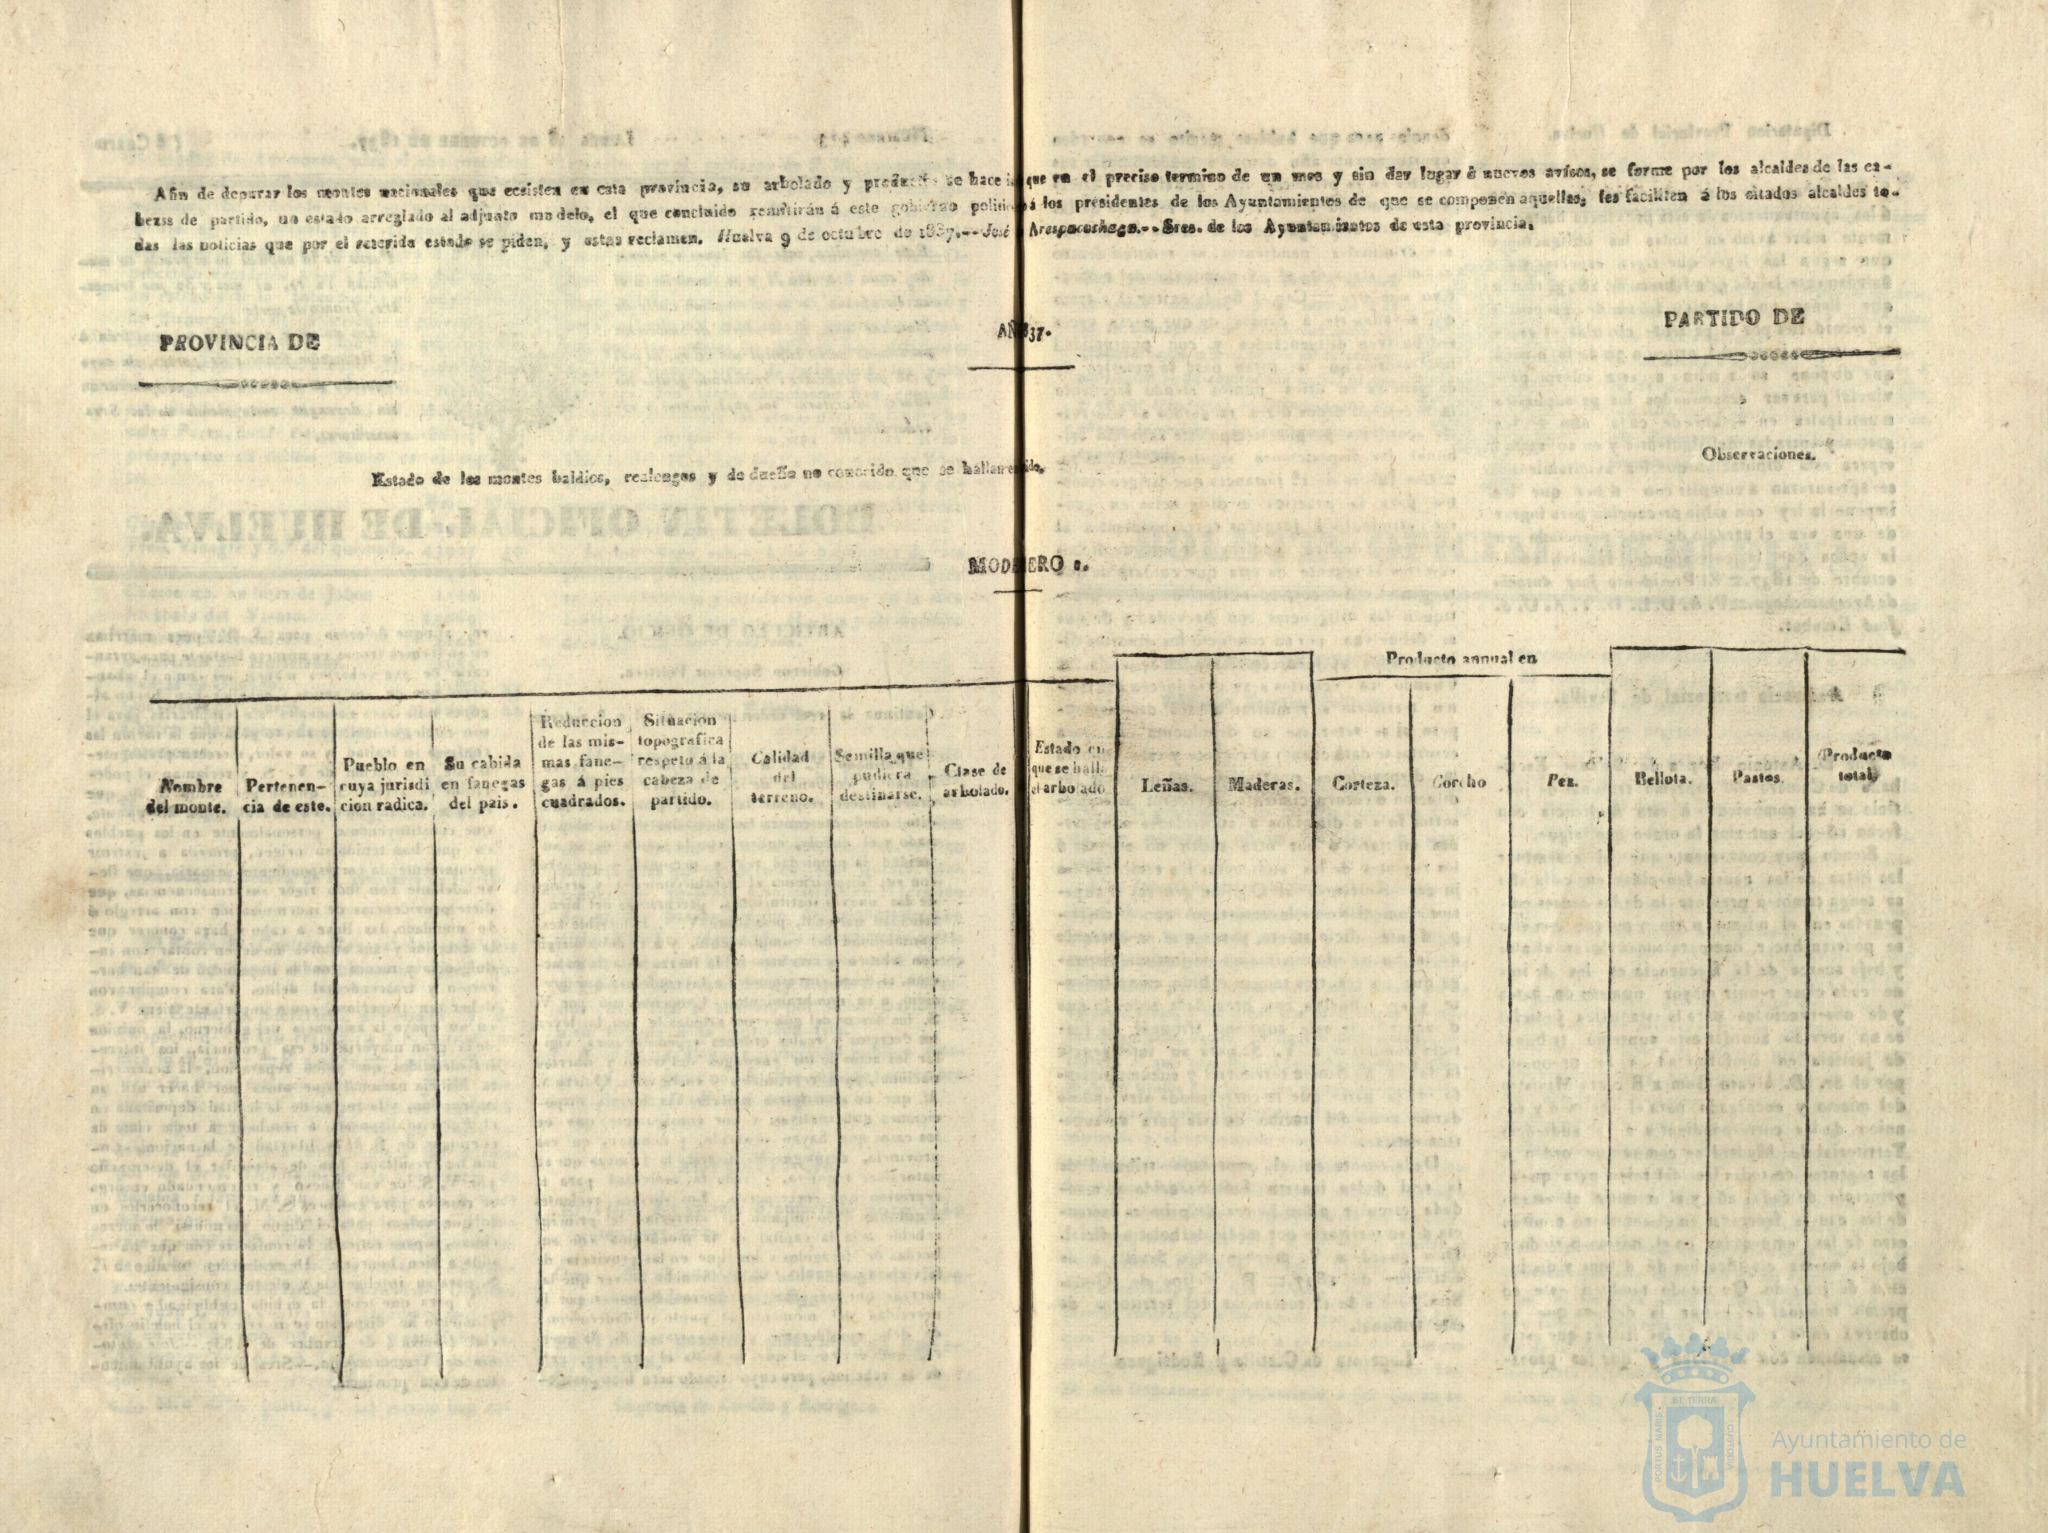 Afin de depurar los montes nacionales que ecsisten en esta provincia, su arbolado y producto se hace que en el preciso termino de un mes y sin dar lugar á nuevos avisos, se forme por los alcaldes de las ca-
bezas de partido, un estado arreglado al adjunto modelo, el que concluido remitirán á este gobierno político á los presidentes de los Ayuntamientos de que se componen aquellas; les faciliten á los citados alcaldes to-
das las noticias que por el referido estado se piden, y estas reclamen. Huelva 9 de octubre de 1837.--José Arespacochaga.--Sres. de los Ayuntamientos de esta provincia.
PROVINCIA DE
AÑ 37.
PARTIDO DE
Estado de los montes baldios, realengos y de dueño no conocido que se hallan
Observaciones.
MODE ERO 2.
Producto annual en
Nombre del monte.
Pertenen- cia de este.
Pueblo en cuya jurisdi cion radica.
Su cabida en fanegas del pais.
Reduccion de las mis- mas fane- gas á pies cuadrados.
Situacion topografica respeto á la cabeza de partido.
Calidad del terreno.
Semilla que pudiera destinarse.
Clase de arbolado.
Estado en que se halla el arbolado
Leñas.
Maderas.
Corteza.
Corcho
Pez.
Bellota.
Pastos.
Producto total.
PORTUS MARIS
ET TERRÆ
CUSTODIA
Ayuntamiento de
HUELVA